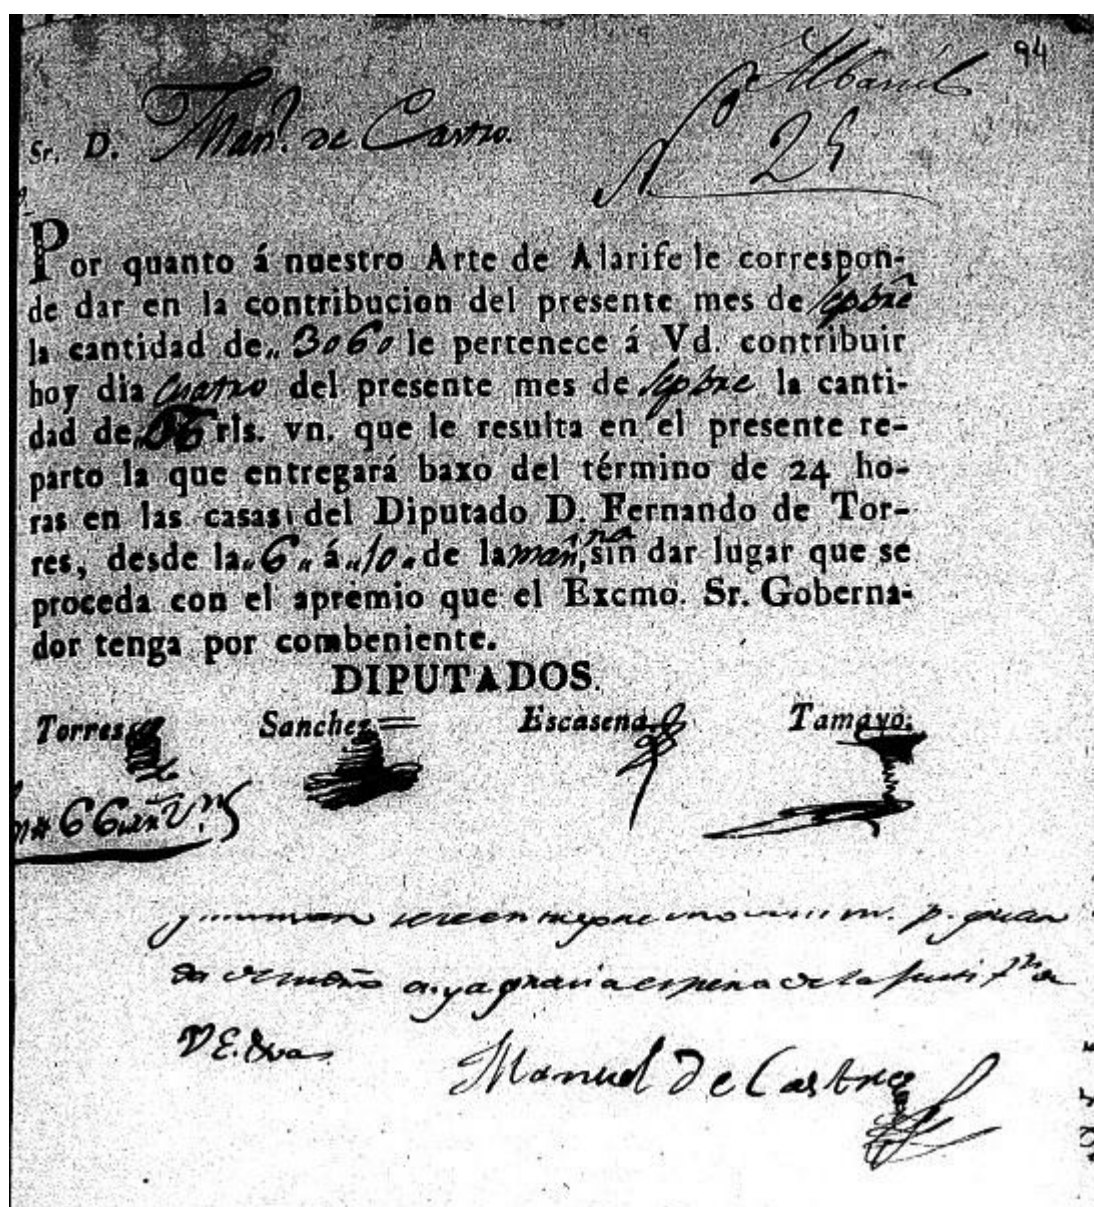 94
Albañil
Sr. D. Man.l de Castro.
N.o 25
Por quanto á nuestro Arte de Alarife le correspon-
de dar en la contribucion del presente mes de sepbre
la cantidad de,, 3060 le pertenece á Vd. contribuir
hoy dia cuatro del presente mes de sepbre la canti-
dad de,, rls. vn. que le resulta en el presente re-
parto la que entregará baxo del término de 24 ho-
ras en las casas del Diputado D. Fernando de Tor-
res, desde la,,6,, á,,10,, de la mañ,na sin dar lugar que se
proceda con el apremio que el Excmo. Sr. Goberna-
dor tenga por combeniente.
DIPUTADOS.
Torres Sanchez Escasena Tamayo.
66
gracia espera de la
V E.
Manuel De Castro